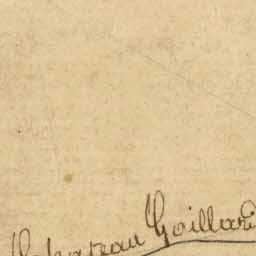 Chateau Gaillard